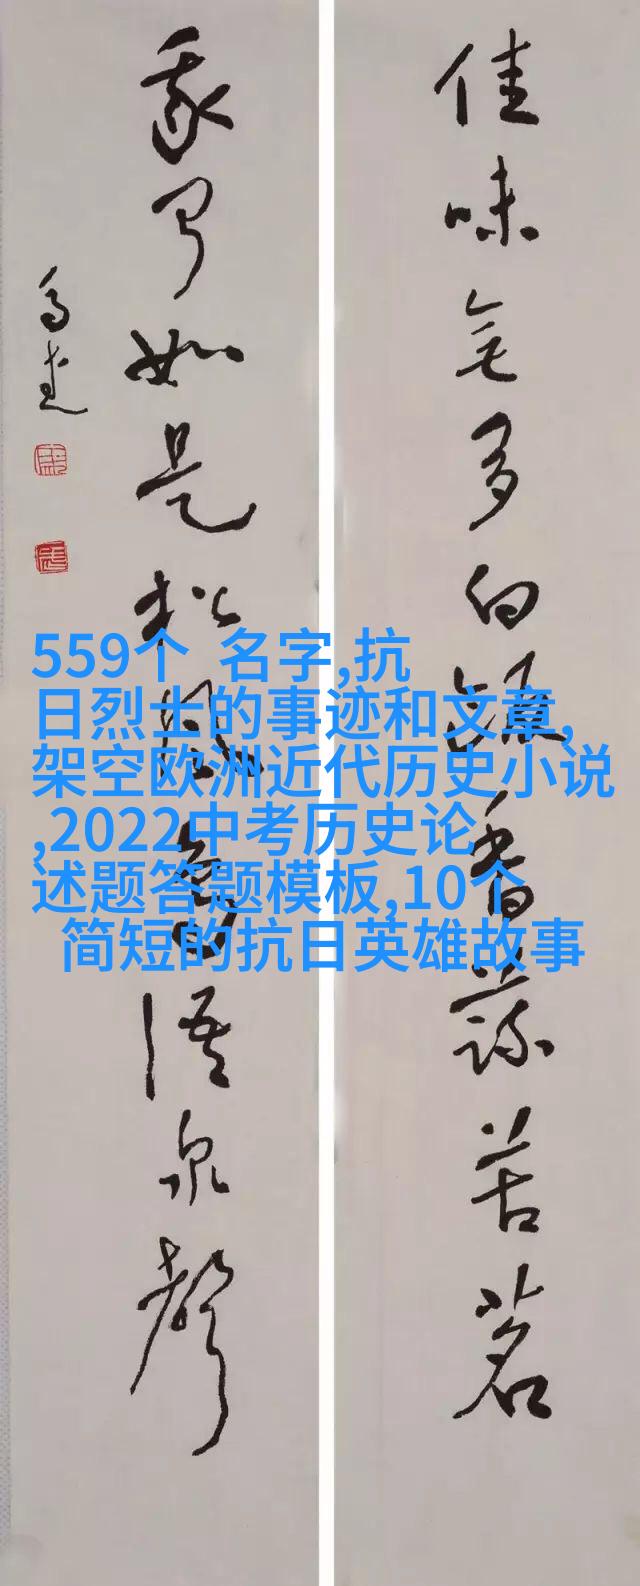 佳味無多白飯香蔬苦茗
我聞如是松風鳥語泉聲
559个 名字,抗
日烈士的事迹和文章,
架空欧洲近代历史小说
,2022中考历史论
述题答题模板,10个
简短的抗日英雄故事